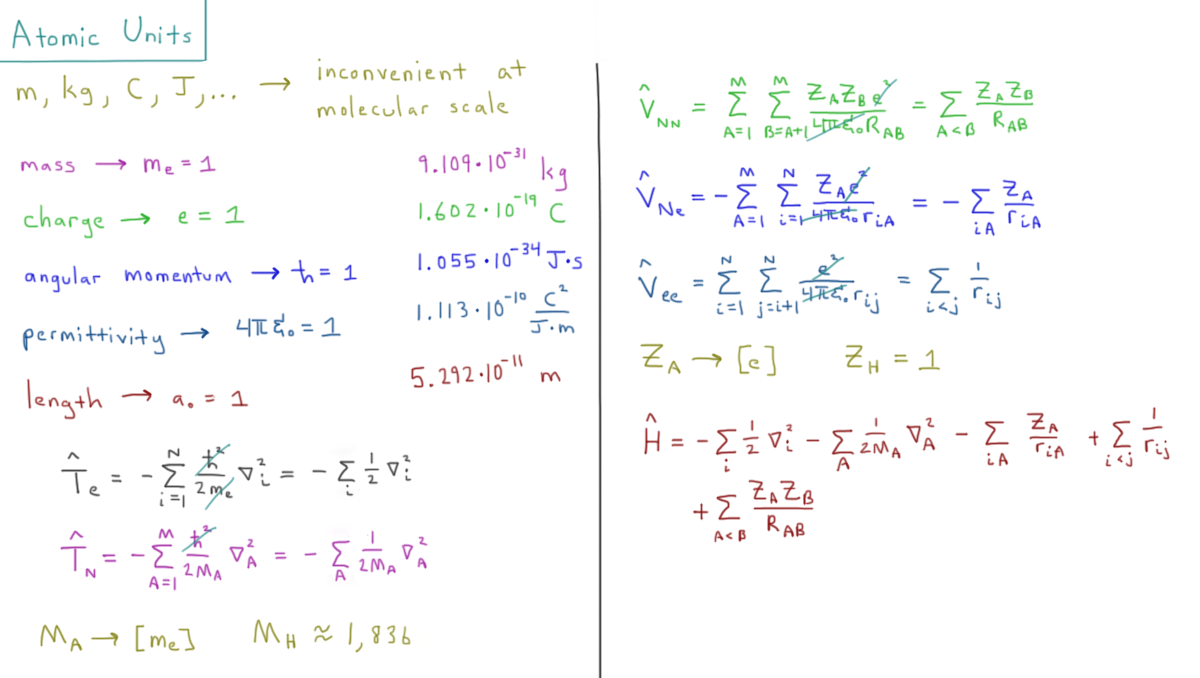 Atomic Units
m, kg, C, J,... → inconvenient at molecular scale
mass → mₑ = 1 9.109·10⁻³¹ kg
charge → e = 1 1.602·10⁻¹⁹ C
angular momentum → ħ = 1 1.055·10⁻³⁴ J·s
permittivity → 4πε₀ = 1 1.113·10⁻¹⁰ C²/J·m
length → a₀ = 1 5.292·10⁻¹¹ m
T̂ₑ = -∑_{i=1}^{N} ħ²/2mₑ ∇ᵢ² = -∑_i 1/2 ∇ᵢ²
T̂_N = -∑_{A=1}^{M} ħ²/2M_A ∇_A² = -∑_A 1/2M_A ∇_A²
M_A → [mₑ] M_H ≈ 1,836
V̂_NN = ∑_{A=1}^{M} ∑_{B=A+1}^{M} Z_A Z_B e²/4πε₀R_AB = ∑_{A<B} Z_A Z_B/R_AB
V̂_Ne = -∑_{A=1}^{M} ∑_{i=1}^{N} Z_A e²/4πε₀r_iA = -∑_{iA} Z_A/r_iA
V̂_ee = ∑_{i=1}^{N} ∑_{j=i+1}^{N} e²/4πε₀r_ij = ∑_{i<j} 1/r_ij
Z_A → [e] Z_H = 1
Ĥ = -∑_i 1/2 ∇ᵢ² - ∑_A 1/2M_A ∇_A² - ∑_{iA} Z_A/r_iA + ∑_{i<j} 1/r_ij
+ ∑_{A<B} Z_A Z_B/R_AB